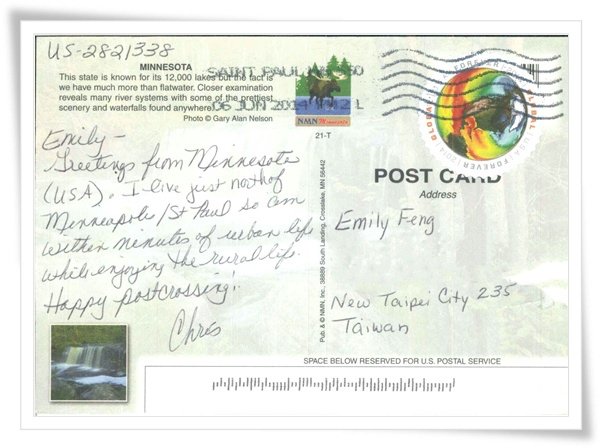 US-2821338
MINNESOTA
This state is known for its 12,000 lakes but the fact is
we have much more than flatwater. Closer examination
reveals many river systems with some of the prettiest
scenery and waterfalls found anywhere.
Photo © Gary Alan Nelson
SAINT PAUL MN 550
06 JUN 2014 PM 2 L
NMN Minnesota
21-T
FOREVER
GLOBAL
USA FOREVER
2014
POST CARD
Address
Emily –
Greetings from Minnesota
(USA). I live just north of
Minneapolis/St Paul so am
within minutes of urban life
while enjoying the rural life.
Happy postcrossing!
Chris
Pub. & © NMN, Inc. 38889 South Landing, Crosslake, MN 56442
Emily Feng
New Taipei City 235
Taiwan
SPACE BELOW RESERVED FOR U.S. POSTAL SERVICE